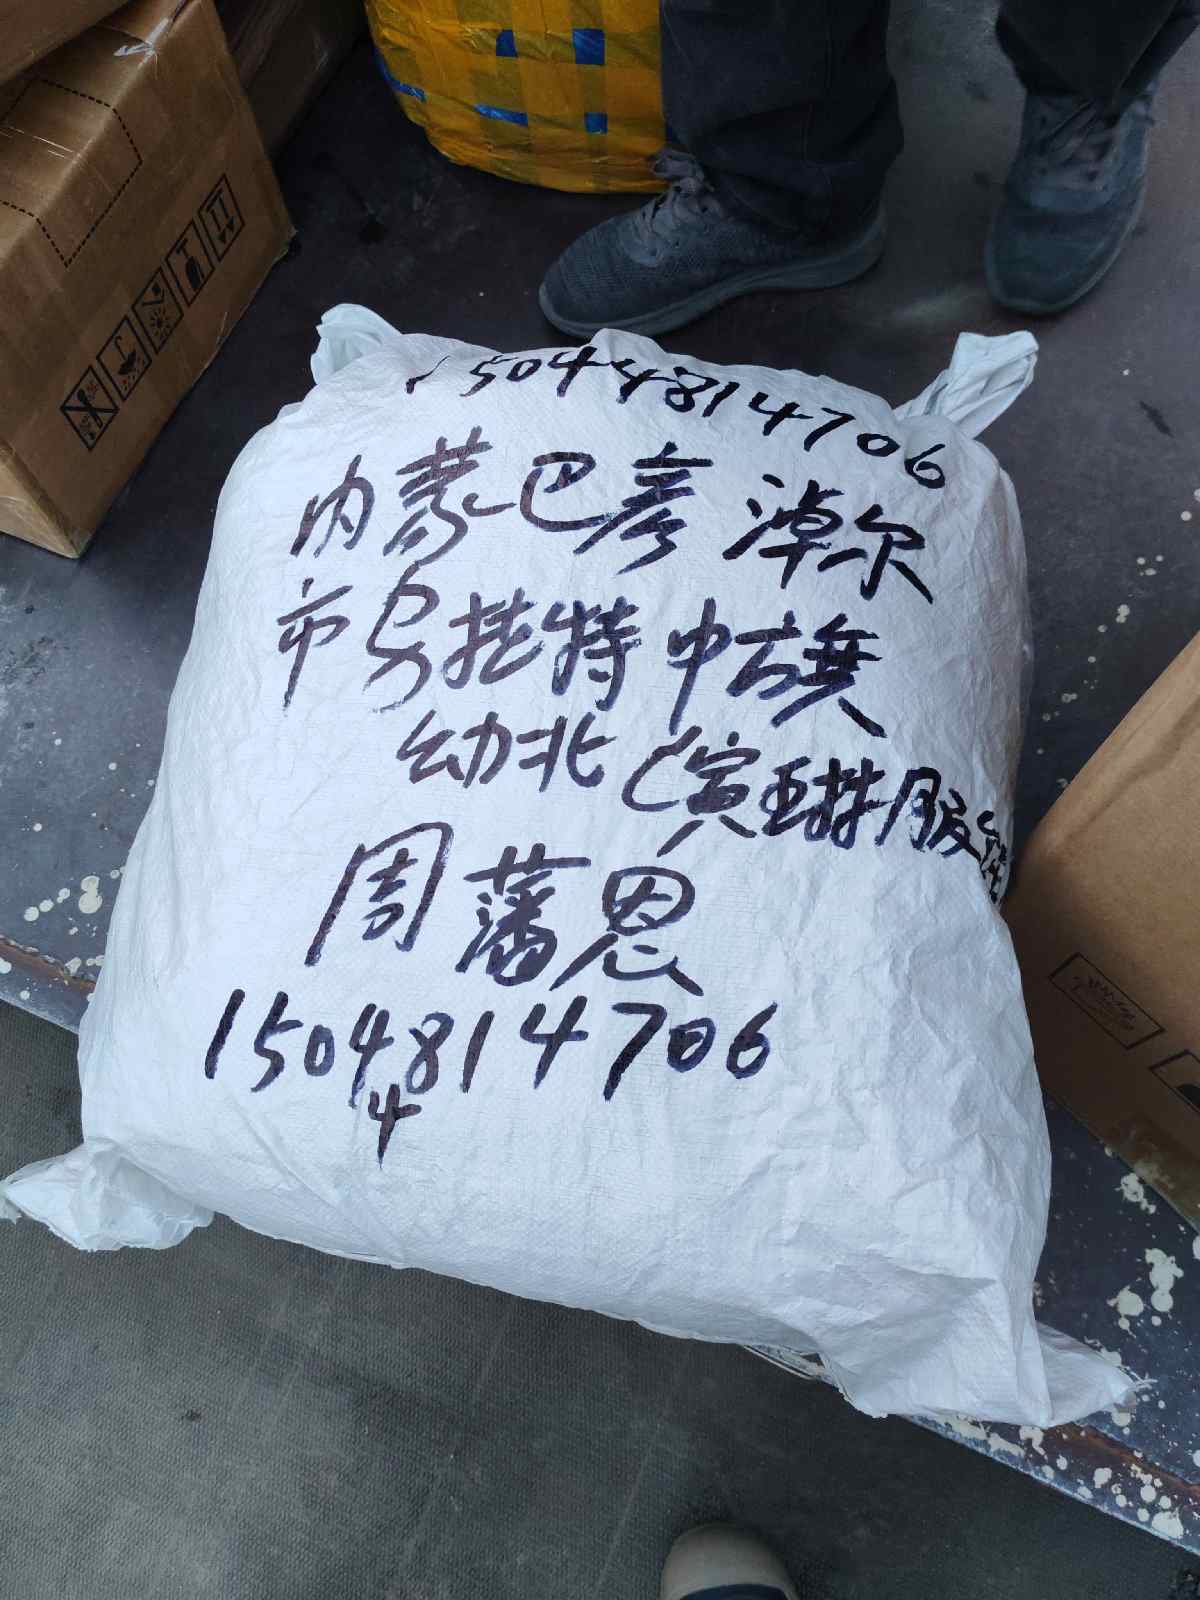 15044814706
内蒙巴彦淖尔
市乌拉特中旗
幼北滨亚琳服饰
周藩恩
1504814706
4